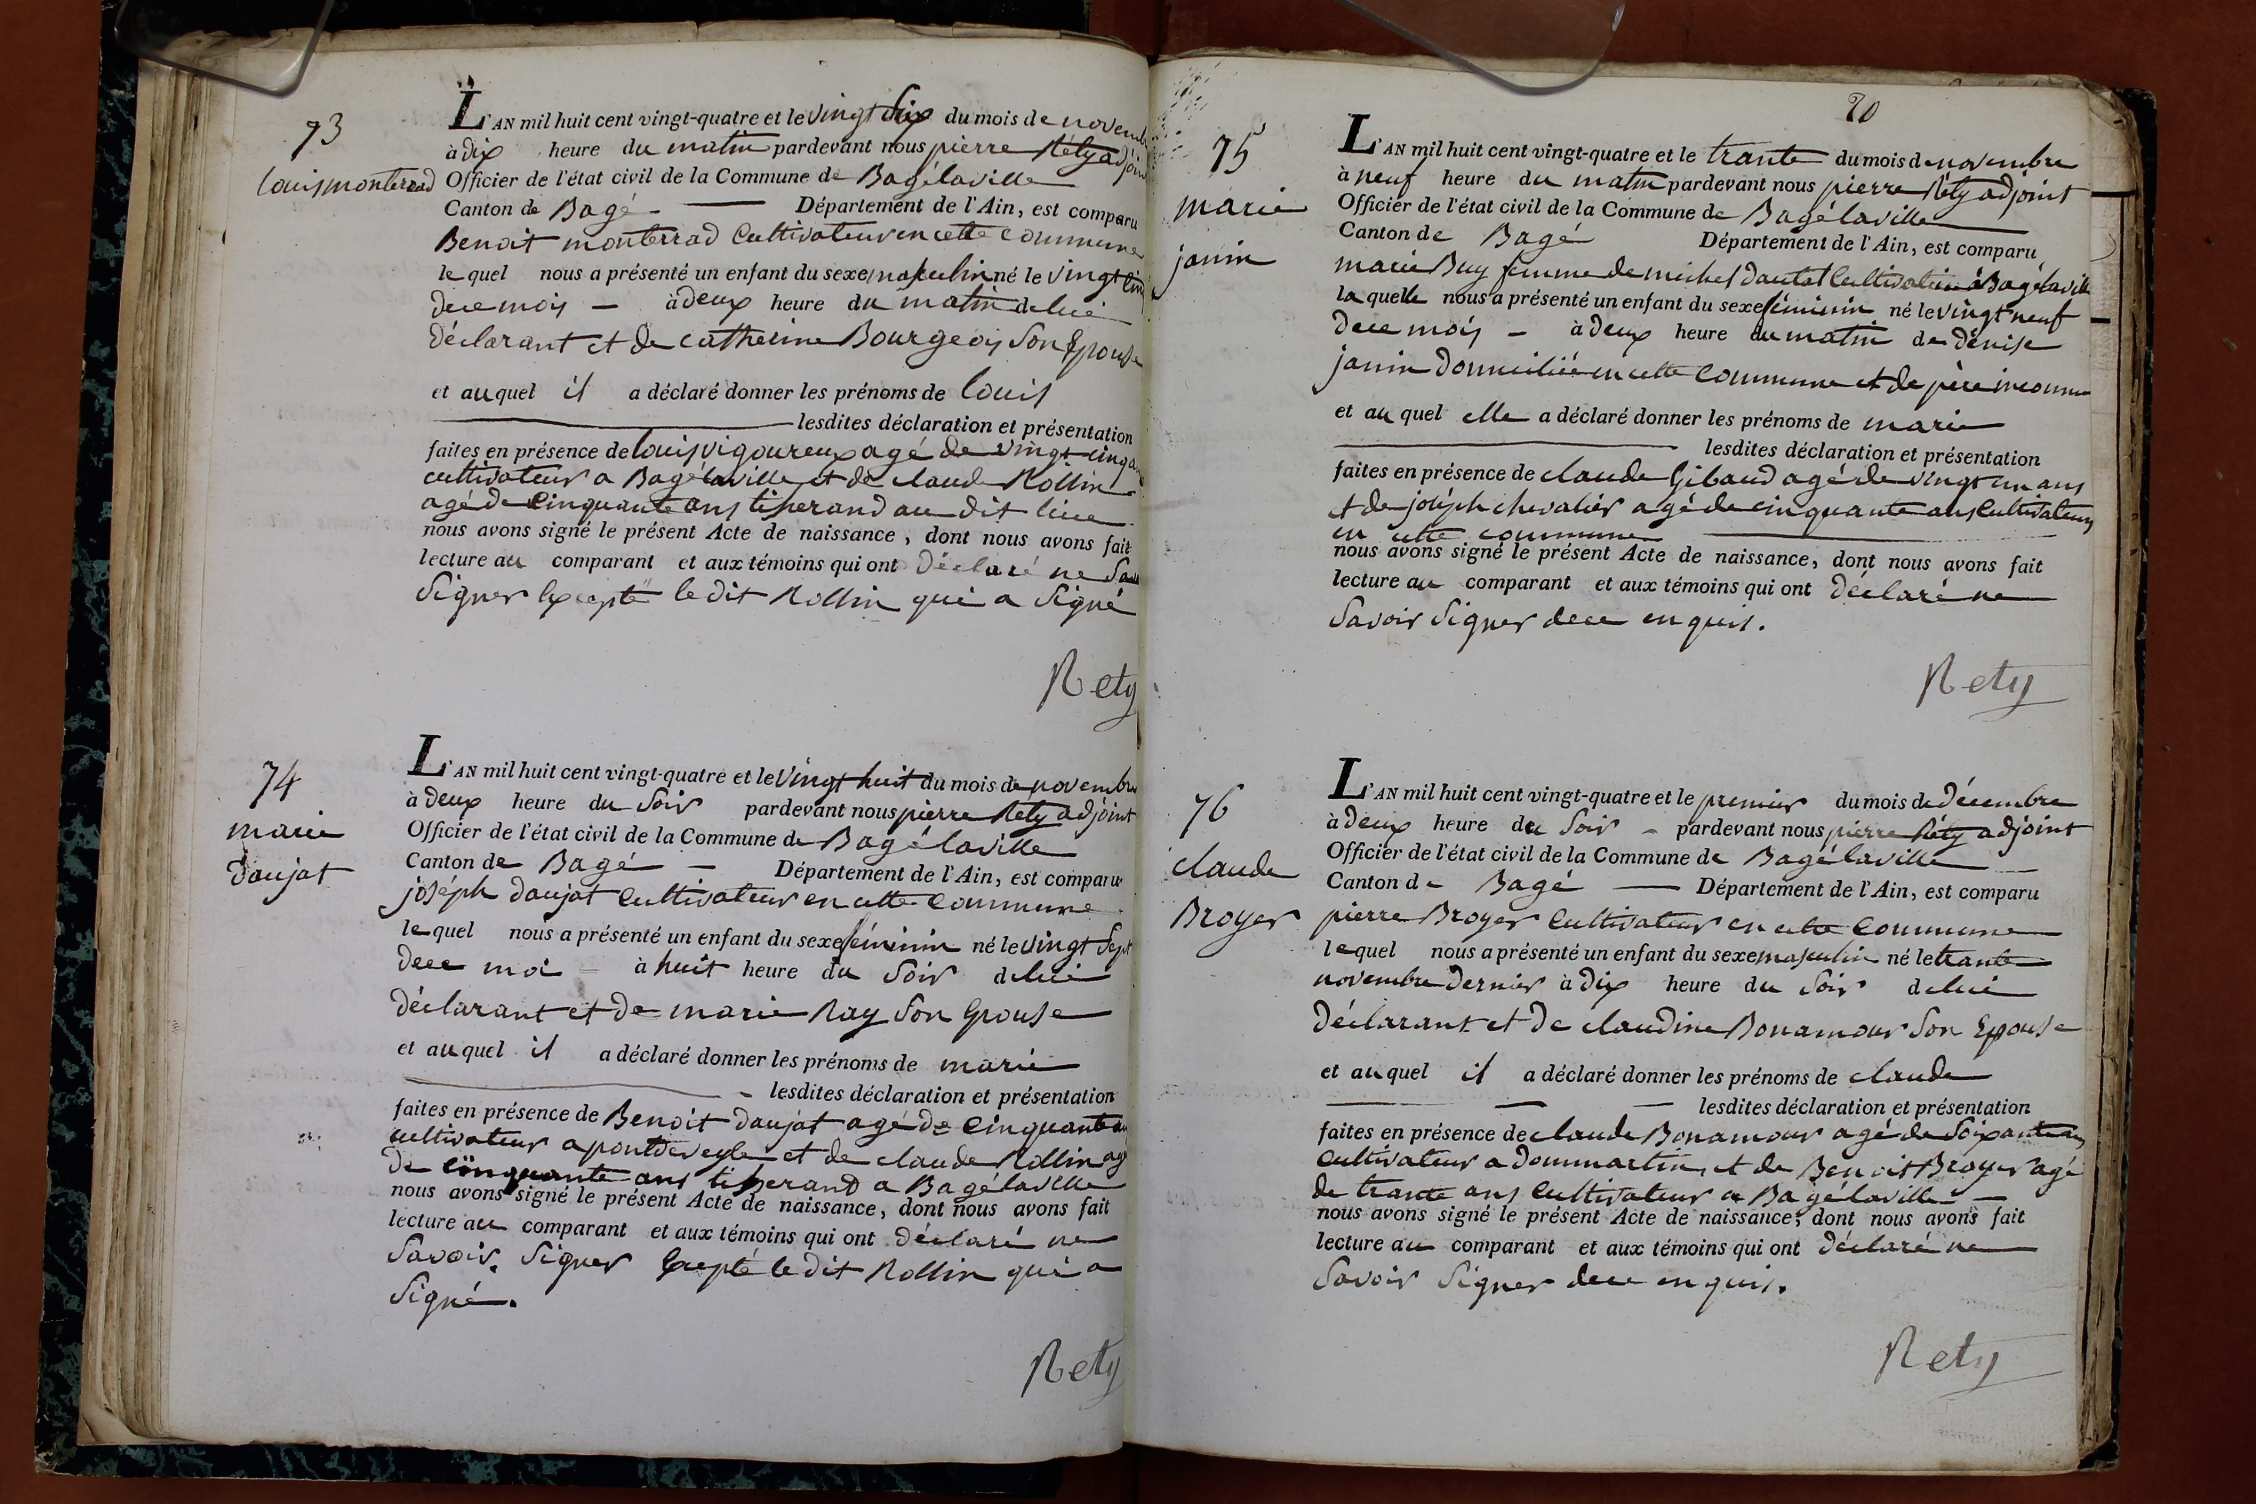 73
Louis monterrad
L'AN mil huit cent vingt-quatre et le vingt Six du mois de novembre
à dix heure du matin pardevant nous pierre Réty adjoint
Officier de l'état civil de la Commune de Bagélaville
Canton de Bagé Département de l'Ain, est comparu
Benoit monterrad Cultivateur en cette commune
le quel nous a présenté un enfant du sexe masculin né le vingt Cinq
de ce mois à deux heure du matin de lui
déclarant et de catherine Bourgeois Son Epouse
et au quel il a déclaré donner les prénoms de louis
lesdites déclaration et présentation
faites en présence de louis vigoureux agé de vingt cinq ans
cultivateur a Bagélaville et de claude Rollin
agé de Cinquante ans tisserand au dit lieu
nous avons signé le présent Acte de naissance, dont nous avons fait
lecture au comparant et aux témoins qui ont Déclaré ne Savoir
Signer Excepté le dit Rollin qui a Signé
Rety
74
marie
daujat
L'AN mil huit cent vingt-quatre et le Vingt huit du mois de novembre
à deux heure du Soir pardevant nous pierre Rety adjoint
Officier de l'état civil de la Commune de Bagélaville
Canton de Bagé Département de l'Ain, est comparu
joséph daujat Cultivateur en cette commune
le quel nous a présenté un enfant du sexe féminin né le vingt Sept
de ce moi à huit heure du Soir de lui
déclarant et De marie Ray Son Epouse
et au quel il a déclaré donner les prénoms de marie
lesdites déclaration et présentation
faites en présence de Benoit daujat agé de Cinquante ans
cultivateur a pontdeveyle et de claude Rollin agé
de Cinquante ans tisserand a Bagélaville
nous avons signé le présent Acte de naissance, dont nous avons fait
lecture au comparant et aux témoins qui ont déclaré ne
Savoir Signer Excepté le dit Rollin qui a
Signé.
Rety
20
75
marie
janin
L'AN mil huit cent vingt-quatre et le trante du mois de novembre
à neuf heure du matin pardevant nous pierre Réty adjoint
Officier de l'état civil de la Commune de Bagélaville
Canton de Bagé Département de l'Ain, est comparu
marie Buy femme de michel dautat Cultivateur a Bagélaville
la quelle nous a présenté un enfant du sexe féminin né le vingt neuf
de ce mois à deux heure du matin de dénise
janin Domiciliée en cette commune et de père inconnu
et au quel elle a déclaré donner les prénoms de marie
lesdites déclaration et présentation
faites en présence de claude Gibaud agé de vingt un ans
et de joséph chevalier agé de cinquante ans Cultivateurs
en cette commune
nous avons signé le présent Acte de naissance, dont nous avons fait
lecture au comparant et aux témoins qui ont déclaré ne
Savoir Signer de ce enquis.
Rety
76
claude
Broyer
L'AN mil huit cent vingt-quatre et le premier du mois de décembre
à deux heure du Soir pardevant nous pierre Réty adjoint
Officier de l'état civil de la Commune de Bagélaville
Canton de Bagé Département de l'Ain, est comparu
pierre Broyer Cultivateur en cette Commune
le quel nous a présenté un enfant du sexe masculin né le trante
novembre Dernier à dix heure du Soir de lui
déclarant et De claudine Bonamour Son Epouse
et au quel il a déclaré donner les prénoms de claude
lesdites déclaration et présentation
faites en présence de claude Bonamour agé de Soixante ans
Cultivateur a dommartin, et de Benoit Broyer agé
de trante ans Cultivateur a Bagélaville
nous avons signé le présent Acte de naissance, dont nous avons fait
lecture au comparant et aux témoins qui ont déclaré ne
Savoir Signer de ce enquis.
Rety